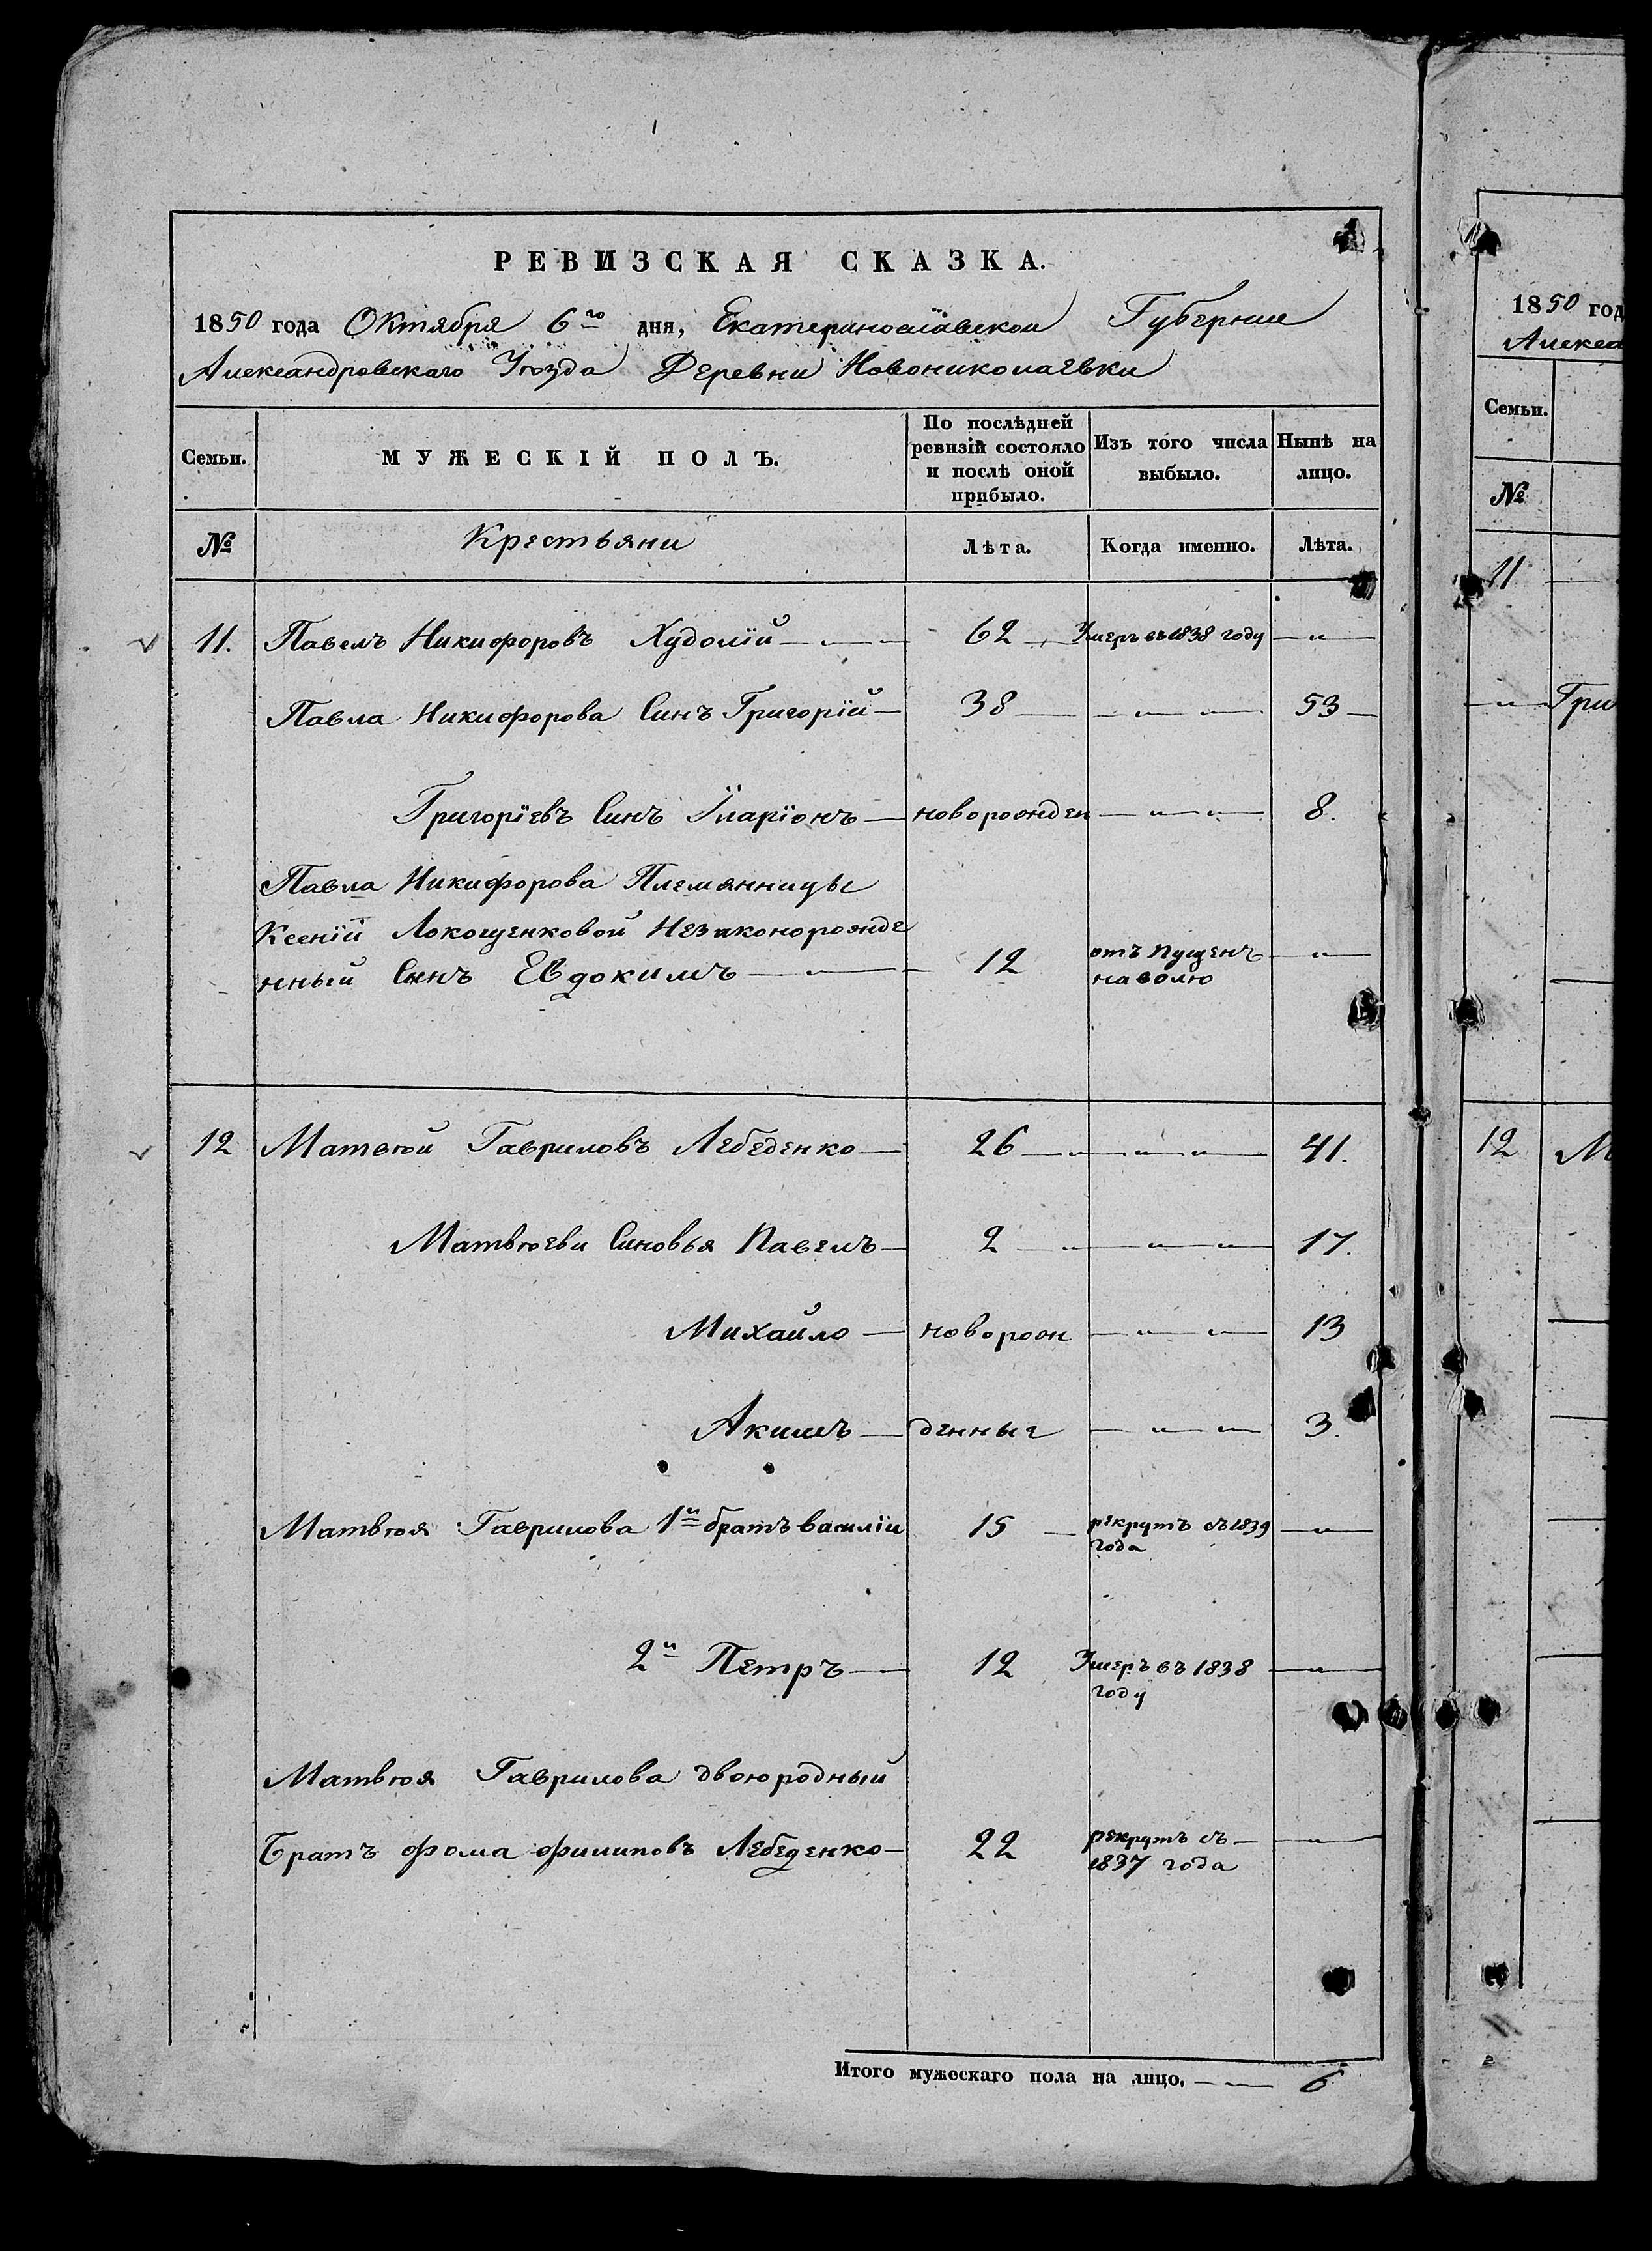 РЕВИЗСКАЯ СКАЗКА.
1850 года Октября 6го дня, Екатеринославской Губернии
Александровскаго Уѣзда Деревни Новониколаевки
Семьи. МУЖЕСКІЙ ПОЛЪ. По послѣдней ревизій состояло и послѣ оной прибыло. Изъ того числа выбыло. Нынѣ на лицо.
№ Крестьяни Лѣта. Когда именно. Лѣта.
11. Павелъ Никифоровъ Худолій 62 Умеръ въ 1838 году
Павла Никифорова Синъ Григорїй 38 53
Григорїевъ Синъ Їларїонъ новорожден 8.
Павла Никифорова Племянницы
Ксенїй Локощенковой Незаконорожде
нный Сынъ Евдокимъ 12 отъ пущенъ
на волю
12 Матвѣй Гавриловъ Лебеденко 26 41.
Матвѣеви Синовья Павелъ 2 17.
Михайло новорож 13
Акимъ денные 3.
Матвѣя Гаврилова 1й братъ василїи 15 рекрутъ съ 1839
года
2й Петръ 12 Умеръ въ 1838
году
Матвѣя Гаврилова двоюродный
Братъ фома филиповъ Лебеденко 22 рекрутъ съ
1837 года
Итого мужескаго пола на лицо. 6
1850 год
Алекса
Семьи.
№
11
Гри
12 М